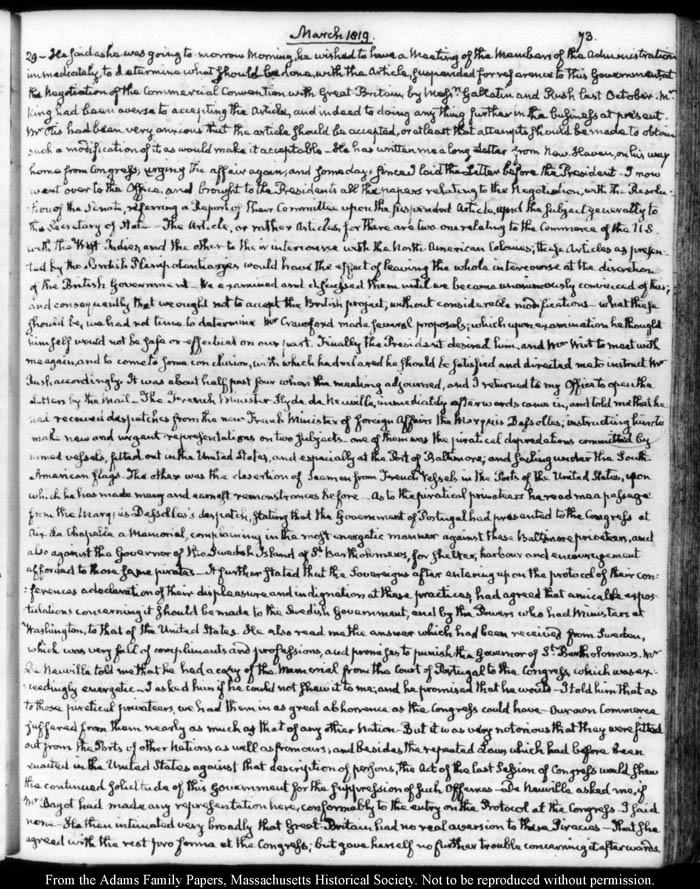 March 1819.
73.
29 – He said as he was going to morrow Morning, he wished to have a Meeting of the Members of the Administration
immediately to determine what should be done, with the Article, suspended for reference to this Government at
the Negotiation of the Commercial Convention with Great-Britain, by Mess.rs Gallatin and Rush last October. Mr
King had been averse to accepting the Article, and indeed to doing any thing further in the business at present.
Mr Otis had been very anxious that the article should be accepted, or at least that attempts should be made to obtain
such a modification of it as would make it acceptable – He has written me a long Letter from New-Haven, on his way
home from Congress, urging the affair again; and some days since I laid the Letter before the President – I now
went over to the Office, and brought to the Presidents all the papers relating to the Negotiation, with the Resolu-
tion of the Senate, referring a Report of their Committee upon the suspended Article, upon the subject generally to
the Secretary of State – The Article, or rather Articles, for there are two one relating to the Commerce of the U.S.
with the West Indies, and the other to their intercourse with the North-American Colonies; these Articles as presen-
ted by the British Plenipotentiaries would have the effect of leaving the whole intercourse at the discretion
of the British Government. We examined and discussed them until we became unanimously convinced of this;
and consequently that we ought not to accept the British project, without considerable modifications – what these
should be, we had not time to determine. Mr Crawford made several proposals; which upon examination he thought
himself would not be safe or effectual on our part. Finally the President desired him, and Mr Wirt to meet with
me again, and to come to some conclusion, with which he declared he should be satisfied and directed me to instruct Mr
Rush, accordingly. It was about half past four when the meeting adjourned, and I returned to my Office to open the
Letters by the Mail – The French Minister Hyde de Neuville, immediately afterwards came in, and told me that he
had received despatches from the new French Minister of foreign Affairs the Marquis Dessolles; instructing him to
make new and urgent representations on two subjects – one of them was the piratical depredations committed by
armed vessels, fitted out in the United States, and especially at the Port of Baltimore; and sailing under the South-
American flags. The other was the desertion of seamen from French Vessels in the Ports of the United States, upon
which he has made many and earnest remonstrances before – As to the piratical privateers he read me a passage
from the Marquis Dessolles's despatch, stating that the Government of Portugal had presented to the Congress at
Aix la Chapelle a Memorial, complaining in the most energetic manner against these Baltimore privateers, and
also against the Governor of the Swedish Island of St Bartholomews, for shelter, harbour and encouragement
afforded to those same pirates – It further stated that the Sovereigns after entering upon the protocol of their con-
:ferences a declaration of their displeasure and indignation at these practices, had agreed that amicable expos-
tulations concerning it should be made to the Swedish Government, and by the Powers who had Ministers at
Washington, to that of the United States. He also read me the answer which had been received from Sweden,
which was very full of compliments and professions, and promises to punish the Governor of St Bartholomews. Mr
De Neuville told me that he had a copy of the Memorial from the Court of Portugal to the Congress, which was ex-
:ceedingly energetic – I asked him if he could not shew it to me; and he promised that he would – I told him that as
to those piratical privateers, we had them in as great abhorrence as the Congress could have – Our own Commerce
suffered from them nearly as much as that of any other Nation – But it was very notorious that they were fitted
out from the Ports of other Nations as well as from ours, and besides the repeated Laws which had before been
enacted in the United States against that description of persons, the Act of the last Session of Congress would shew
the continued solicitude of this Government for the suppression of such Offences – De Neuville asked me, if
Mr Bagot had made any representation here, conformably to the entry on the Protocol at the Congress. I said
none – He then intimated very broadly that Great-Britain had no real aversion to these Piracies – That she
agreed with the rest pro forma at the Congress; but gave herself no further trouble concerning it afterwards.
From the Adams Family Papers, Massachusetts Historical Society. Not to be reproduced without permission.